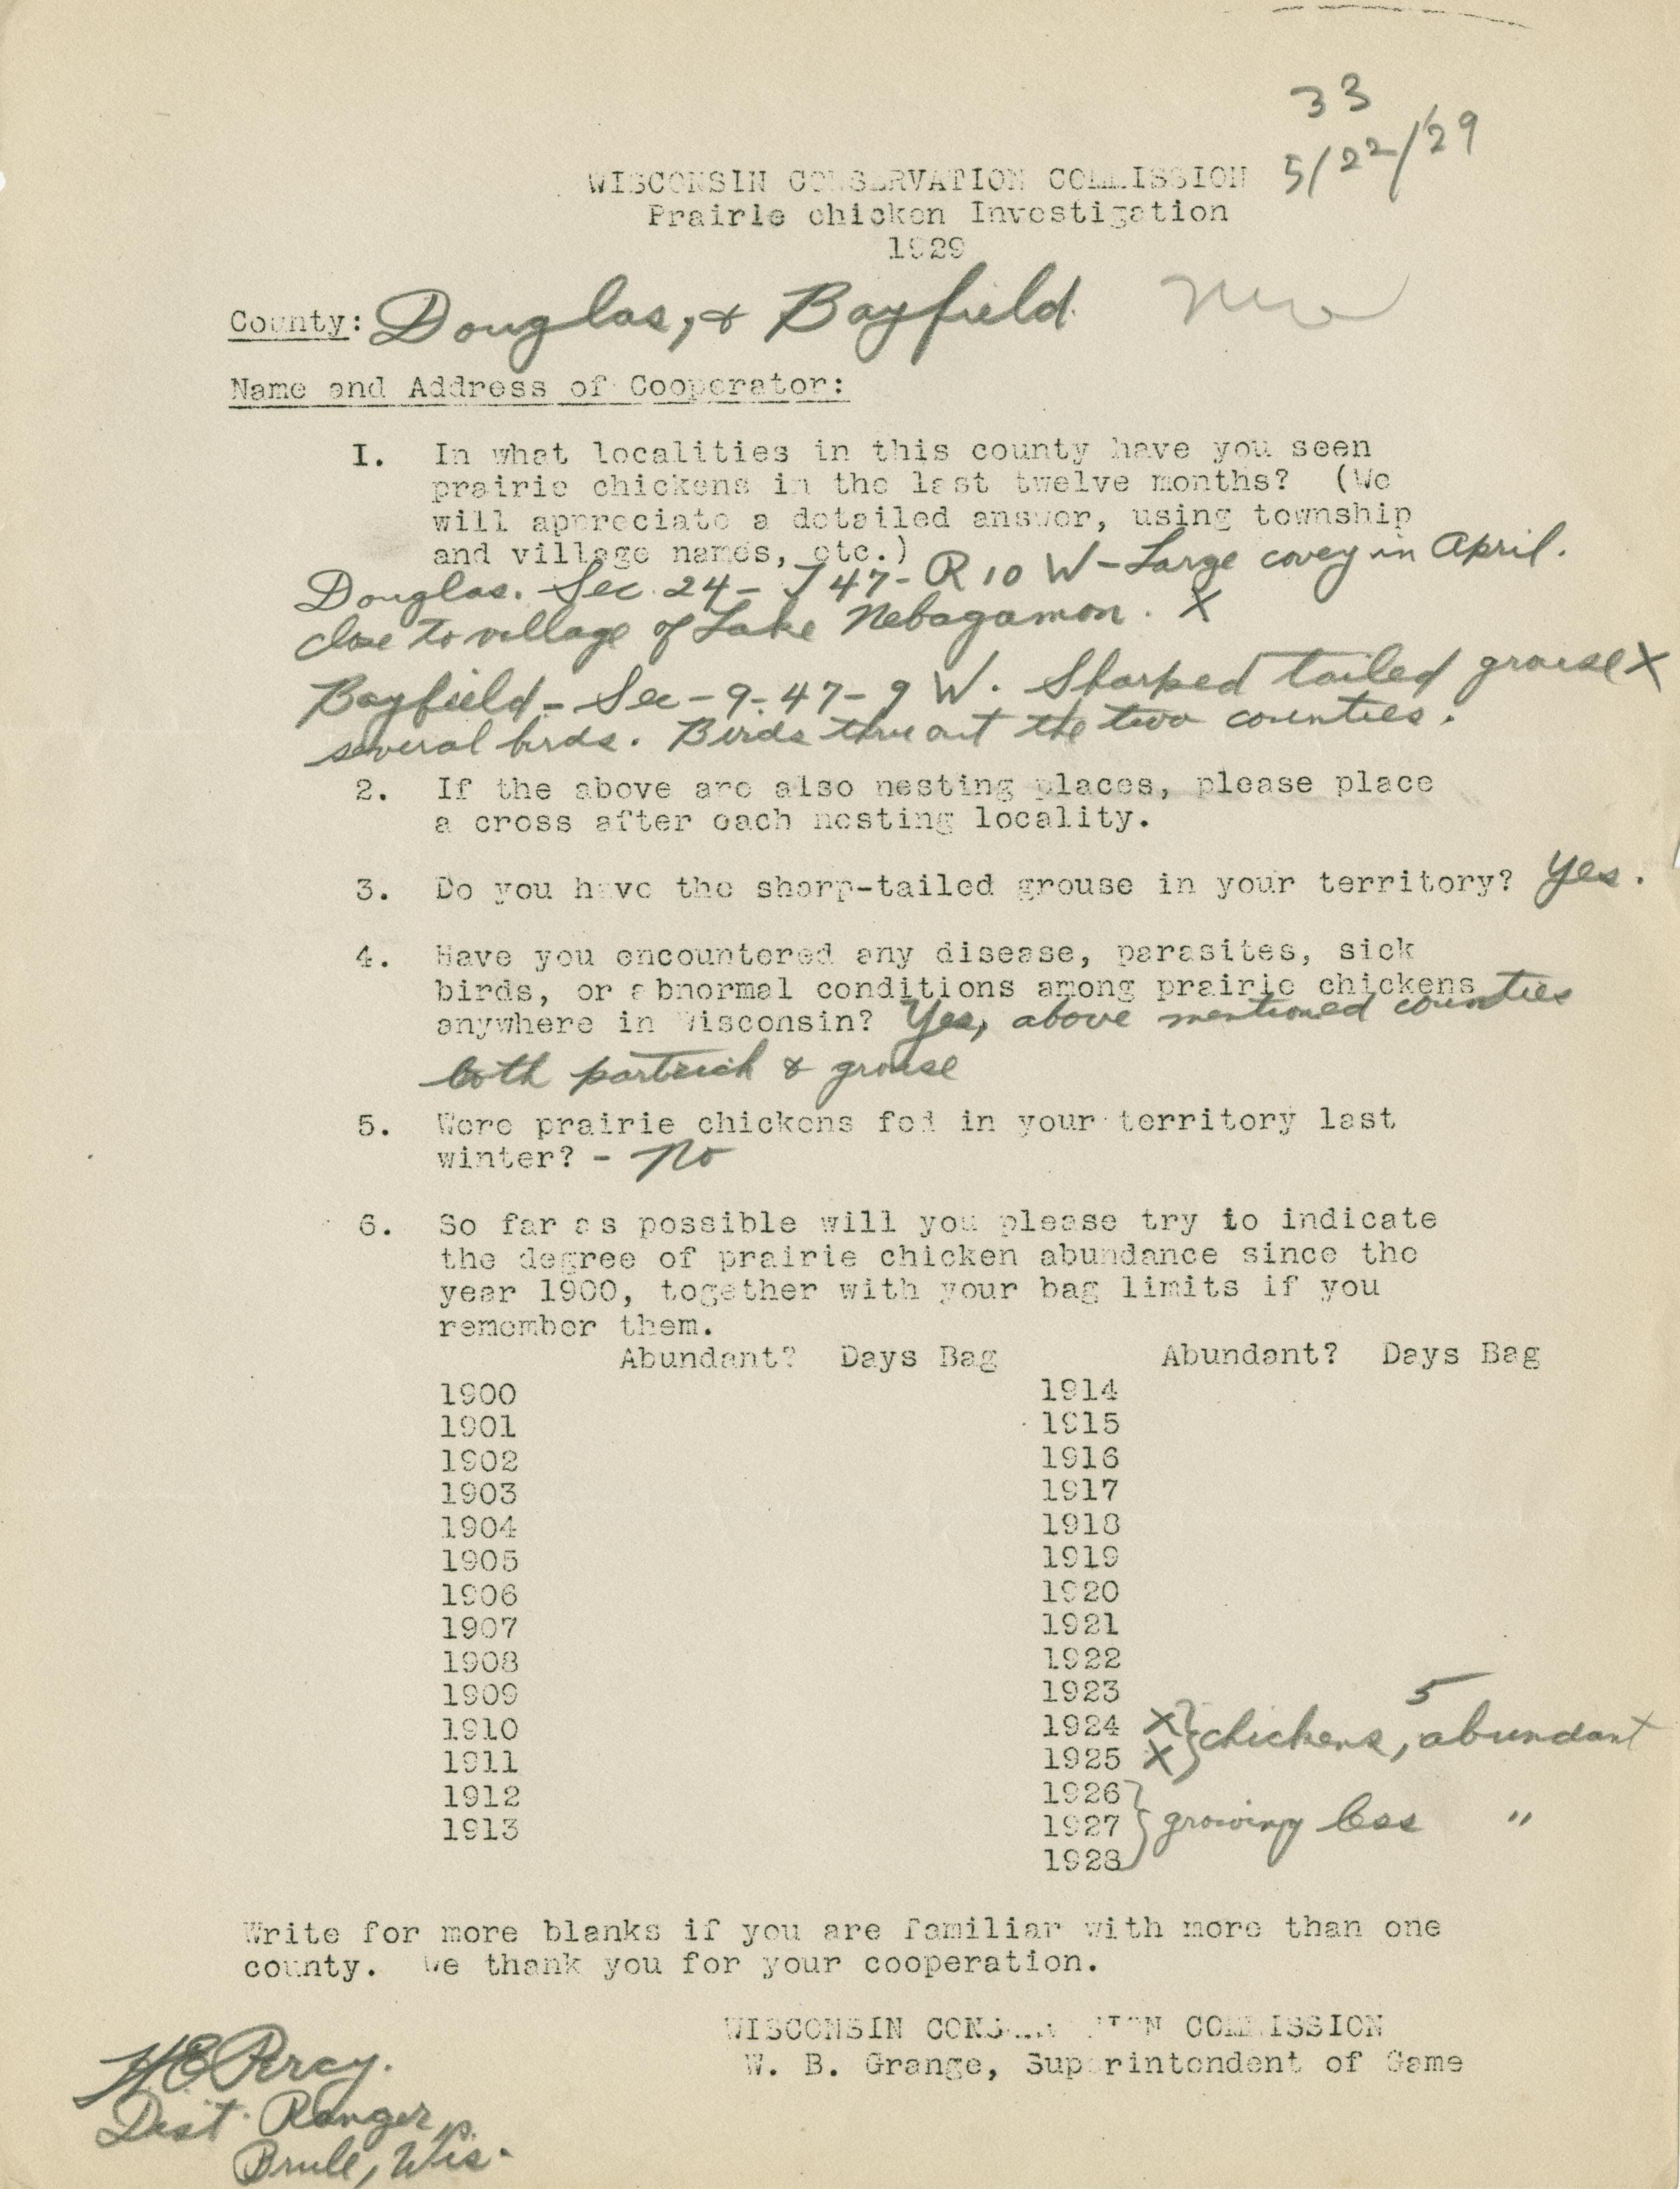 33
5/22/29
WISCONSIN CONSERVATION COMMISSION
Prairie chicken Investigation
1929
County: Douglas, & Bayfield.
Name and Address of Cooperator:
1. In what localities in this county have you seen
prairie chickens in the last twelve months? (We
will appreciate a detailed answer, using township
and village names, etc.)
Douglas. Sec. 24 - T 47 - R 10 W - Large covey in April.
close to village of Lake Nebagamon. X
Bayfield - Sec - 9 - 47 - 9 W. Sharped tailed grouse X
several birds. Birds thruout the two counties.
2. If the above are also nesting places, please place
a cross after each nesting locality.
3. Do you have the sharp-tailed grouse in your territory? Yes.
4. Have you encountered any disease, parasites, sick
birds, or abnormal conditions among prairie chickens
anywhere in Wisconsin? Yes, above mentioned counties
both partrich & grouse
5. Were prairie chickens fed in your territory last
winter? - No
6. So far as possible will you please try to indicate
the degree of prairie chicken abundance since the
year 1900, together with your bag limits if you
remember them.
Abundant? Days Bag Abundant? Days Bag
1900 1914
1901 1915
1902 1916
1903 1917
1904 1918
1905 1919
1906 1920
1907 1921
1908 1922
1909 1923 5
1910 1924 X } chickens, abundant
1911 1925 X
1912 1926
1913 1927 } growing less "
1928
Write for more blanks if you are familiar with more than one
county. We thank you for your cooperation.
WISCONSIN CONSERVATION COMMISSION
W. B. Grange, Superintendent of Game
H E Percy.
Dist. Ranger,
Brule, Wis.